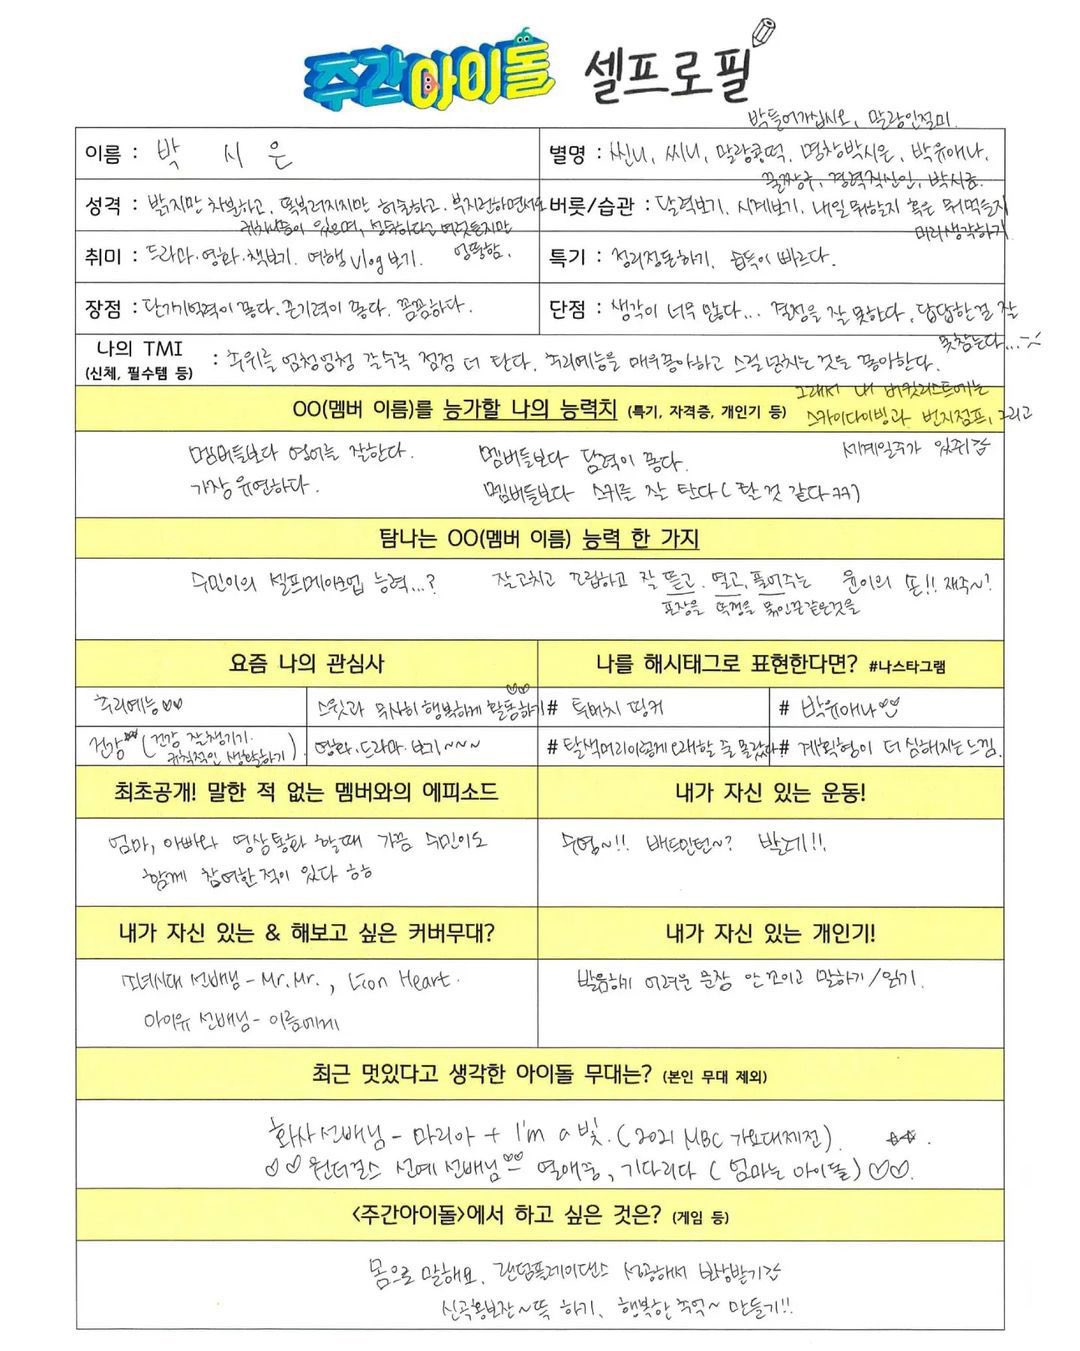 주간아이돌 셀프로필
이름 : 박 시 은
박들어가십시오, 말랑인절미.
별명 : 씨니, 씨니, 말랑콩떡, 명창박시은, 박유애나,
꿀짱구, 경력직신인, 박시호.
성격 : 밝지만 차분하고, 똑부러지지만 허술하고, 부지런하면서도
귀차니즘이 있으며, 성숙하다고 여겨지지만
엉뚱함.
버릇/습관 : 달력보기, 시계보기, 내일 뭐할지 혹은 뭐먹을지
미리생각하기
취미 : 드라마·영화·책보기. 여행 vlog 보기.
특기 : 정리정돈하기. 습득이 빠르다.
장점 : 단기기억력이 좋다. 끈기력이 좋다. 꼼꼼하다.
단점 : 생각이 너무 많다... 결정을 잘 못한다. 답답한걸 잘
못참는다...
나의 TMI
(신체, 필수템 등)
: 추위를 엄청엄청 갈수록 점점 더 탄다. 추리예능을 매우좋아하고 스릴 넘치는 것을 좋아한다.
그래서 내 버킷리스트에는
스카이다이빙과 번지점프, 그리고
세계일주가 있쥐
OO(멤버 이름)를 능가할 나의 능력치 (특기, 자격증, 개인기 등)
멤버들보다 영어를 잘한다. 멤버들보다 담력이 좋다.
가장 유연하다. 멤버들보다 스키를 잘 탄다 (탈 것 같다ㅋㅋ)
탐나는 OO(멤버 이름) 능력 한 가지
수민이의 셀프메이크업 능력...? 잘고치고 끄립하고 잘 뜯고, 열고, 풀어주는 윤이의 손!! 재주~!
포장을 뚜껑을 묶인끈같은것을
요즘 나의 관심사
추리예능♡♡
스윗과 무사히 행복하게 활동하기♡♡
건강 (건강 잘챙기기. 규칙적인 생활하기)
영화·드라마·보기~~~
나를 해시태그로 표현한다면? #나스타그램
# 투머치 띵커
# 박유애나♡♡
# 탈색머리이렇게오래할 줄 몰랐다
# 계획형이 더 심해지는느낌.
최초공개! 말한 적 없는 멤버와의 에피소드
엄마, 아빠와 영상통화 할때 가끔 수민이도
함께 참여한적이 있다 ㅎㅎ
내가 자신 있는 운동!
수영~!! 배드민턴~? 발레!!
내가 자신 있는 & 해보고 싶은 커버무대?
소녀시대 선배님 - Mr.Mr., Lion Heart.
아이유 선배님 - 이름에게
내가 자신 있는 개인기!
발음하기 어려운 문장 안꼬이고 말하기/읽기.
최근 멋있다고 생각한 아이돌 무대는? (본인 무대 제외)
화사선배님 - 마리아 + I'm a 빛. (2021 MBC 가요대제전). ☆☆.
♡♡ 원더걸스 선예 선배님♡♡ 열애중, 기다리다 (엄마는 아이돌) ♡♡.
<주간아이돌>에서 하고 싶은 것은? (게임 등)
몸으로 말해요, 랜덤플레이댄스 성공해서 보상받기
신곡홍보잔~뜩 하기, 행복한 추억~ 만들기!!